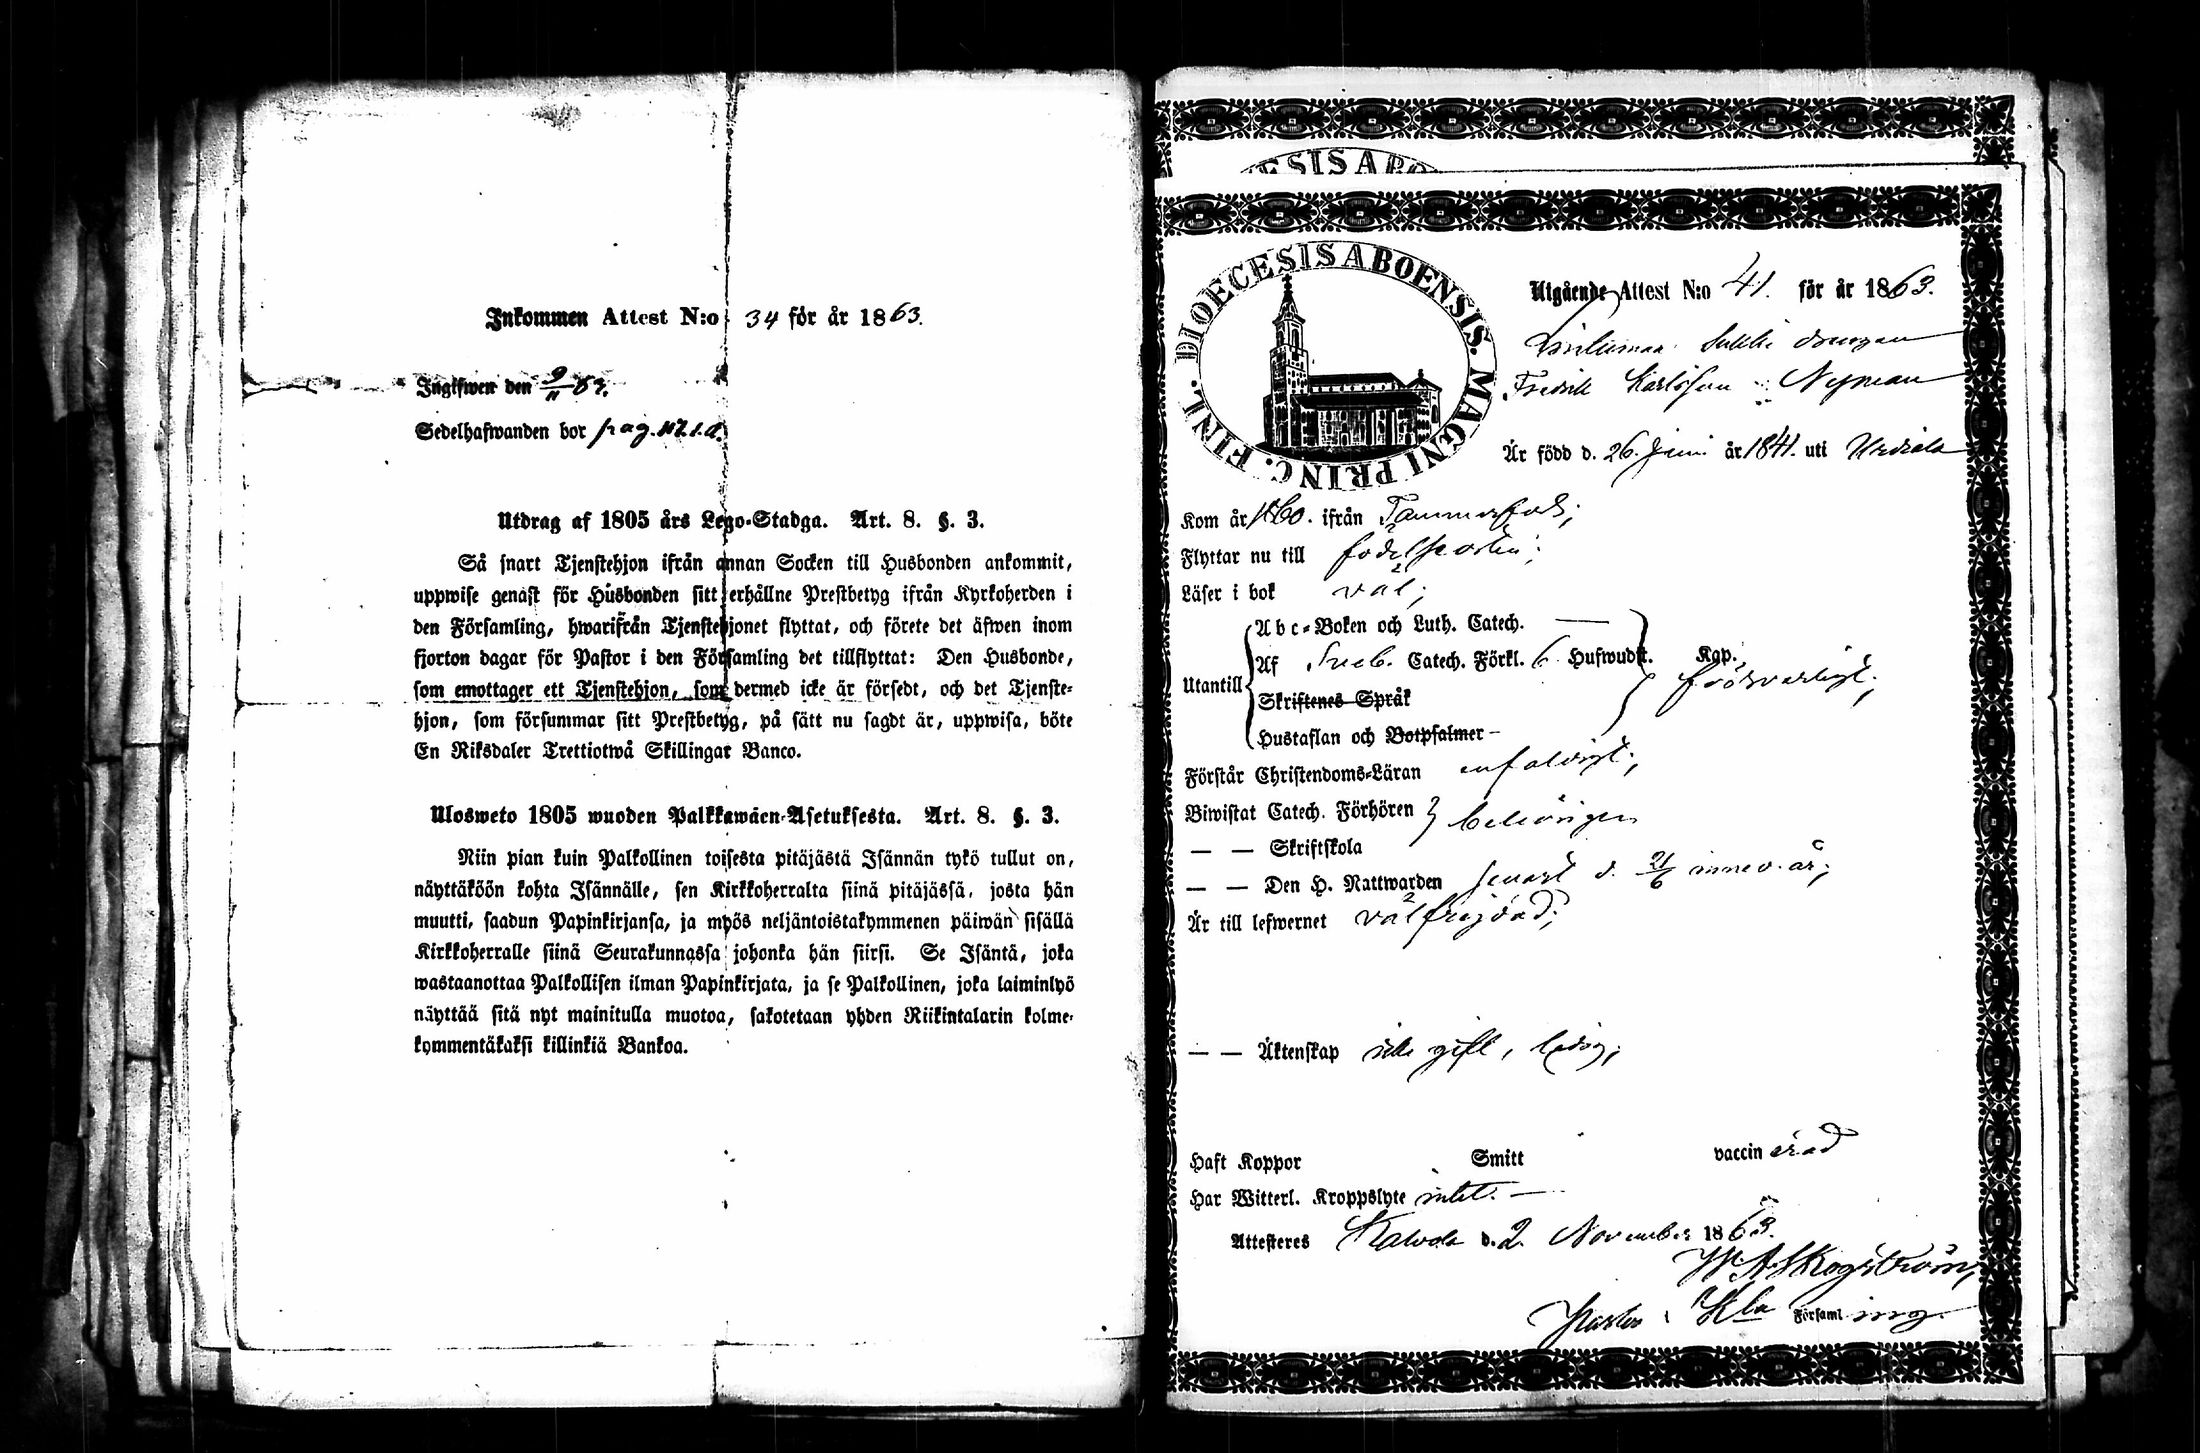 Inkommen Attest N:o 34 för år 1863.
Ingifwen den 9/11 63.
Sedelhafwanden bor pag.
Utdrag af 1805 års Lego-Stadga. Art. 8. §. 3.
Så snart Tjenstehjon ifrån annan Socken till Husbonden ankommit,
uppwise genast för Husbonden sitt erhållne Prestbetyg ifrån Kyrkoherden i
den Församling, hwarifrån Tjenstehjonet flyttat, och förete det äfwen inom
fjorton dagar för Pastor i den Församling det tillflyttat: Den Husbonde,
som emottager ett Tjenstehjon, som dermed icke är försedt, och det Tjenste-
hjon, som försummar sitt Prestbetyg, på sätt nu sagdt är, uppwisa, böte
En Riksdaler Trettiotwå Skillingar Banco.
Ulosweto 1805 wuoden Palkkawäen-Asetuksesta. Art. 8. §. 3.
Niin pian kuin Palkollinen toisesta pitäjästä Isännän tykö tullut on,
näyttäköön kohta Isännälle, sen Kirkkoherralta siinä pitäjässä, josta hän
muutti, saadun Papinkirjansa, ja myös neljäntoistakymmenen päiwän sisällä
Kirkkoherralle siinä Seurakunnassa johonka hän siirsi. Se Isäntä, joka
wastaanottaa Palkollisen ilman Papinkirjata, ja se Palkollinen, joka laiminlyö
näyttää sitä nyt mainitulla muotoa, sakotetaan yhden Riikintalarin kolme-
kymmentäkaksi killinkiä Bankoa.
ESIS ABO
DIOECESIS ABOENSIS. MAGNI PRINC. FINL.
Utgående Attest N:o 41. för år 1863.
drengen
Fredrik Karlsson Nyman
Är född d. 26. Juni år 1841. uti Urdiala
Kom år 1860. ifrån Tammerfors;
Flyttar nu till födelseorten;
Läser i bok väl;
Utantill
Abc-Boken och Luth. Catech. —
Af Sveb. Catech. Förkl. 6 Hufwudst. Kap. försvarligt;
Skriftenes Språk
Hustaflan och Botpsalmer –
Förstår Christendoms-Läran enfaldigt;
Biwistat Catech. Förhören } behörigen
— — Skriftskola
— — Den H. Nattwarden senast d. 21/6 innev. år;
Är till lefwernet välfrejdad;
— — Äktenskap icke gift, ledig;
Haft Koppor Smitt vaccinerad
Har Witterl. Kroppslyte intet. —
Attesteres Kalvola d. 2. November 1863.
W. A. Skogström,
Pastor i Kla Församling.